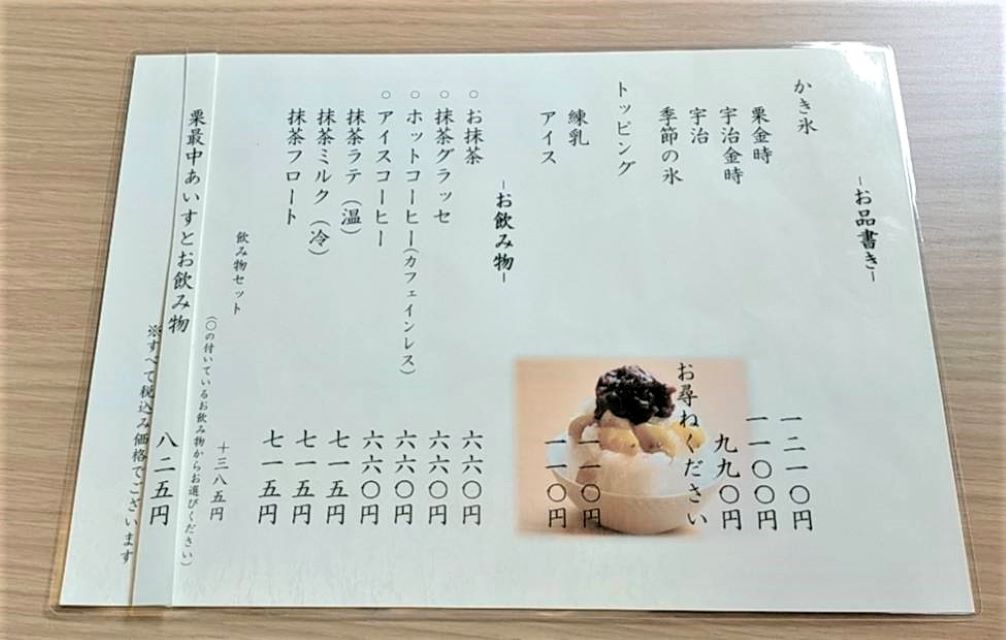 ―お品書き―
かき氷
栗金時 一二一〇円
宇治金時 一一〇〇円
宇治 九九〇円
季節の氷 お尋ねください
トッピング
練乳 一一〇円
アイス 一一〇円
―お飲み物―
○お抹茶 六六〇円
○抹茶グラッセ 六六〇円
○ホットコーヒー(カフェインレス) 六六〇円
○アイスコーヒー 六六〇円
抹茶ラテ(温) 七一五円
抹茶ミルク(冷) 七一五円
抹茶フロート 七一五円
飲み物セット +三八五円
(○の付いているお飲み物からお選びください)
栗最中あいすとお飲み物 八二五円
※すべて税込み価格でございます